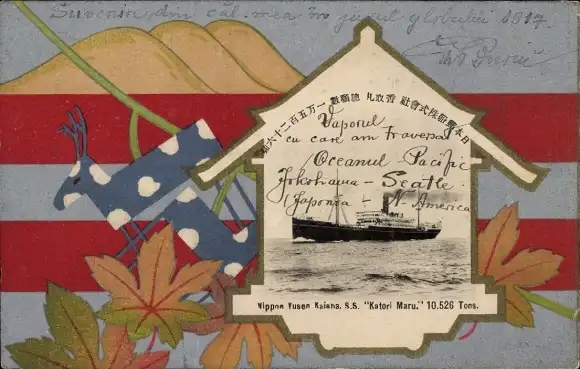 Suvenir, din căl. mea, în jurul globului 1917.
日本郵船株式會社 香取丸 總噸數 一万五百二十六噸
Vaporul
cu care am traversat
Oceanul Pacific
Jokohama - Seatle.
(Japonia - N. America
Nippon Yusen Kaisha. S.S. "Katori Maru." 10.526 Tons.